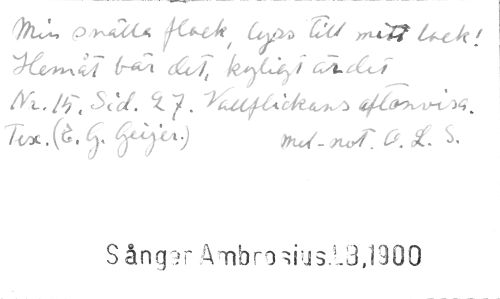 Min snälla flock, lyss till mitt lock!
Hemåt bär det, kyligt är det
Nr. 15. Sid. 27. Vallflickans aftonvisa.
Tex. (E. G. Geijer.) mel-not. O. L. S.
Sånger Ambrosius.LB,1900